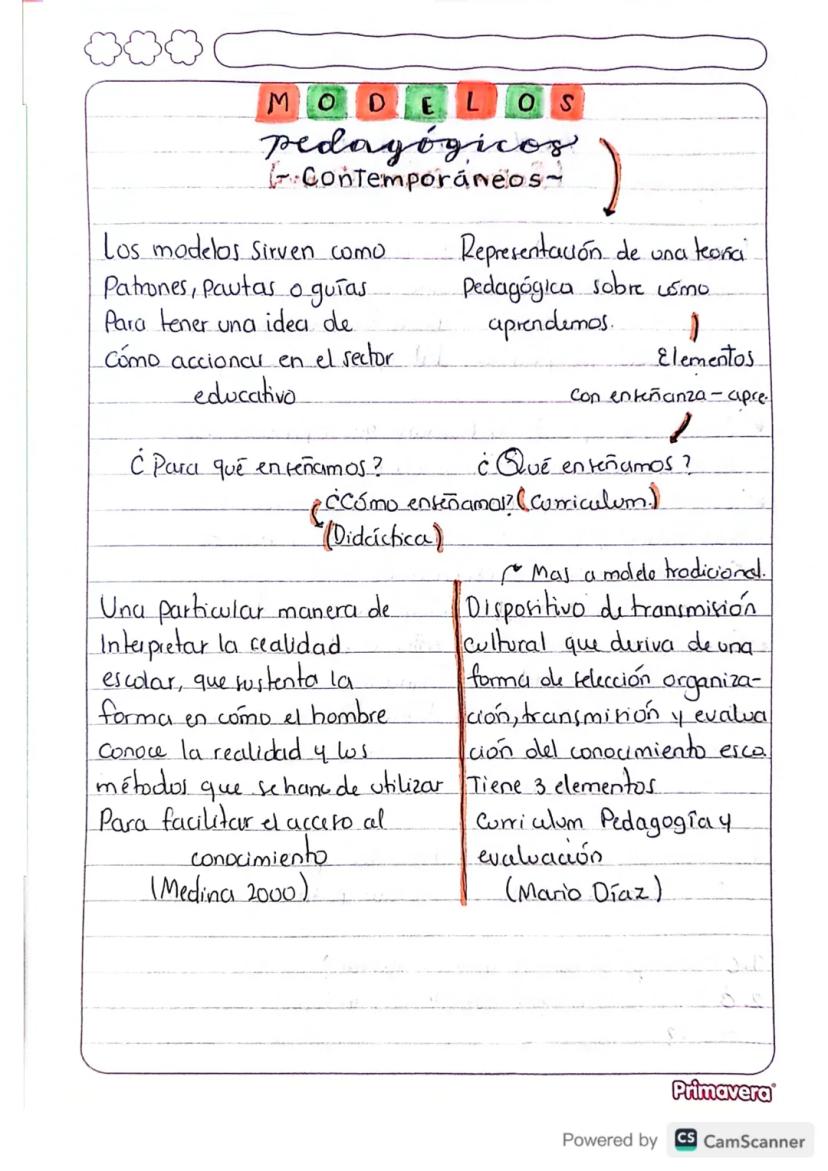 MODELOS
pedagógicos
~Contemporáneos~
Los modelos sirven como
Patrones, pautas o guías
Para tener una idea de
cómo accionar en el sector
educativo
Representación de una teoría
Pedagógica sobre cómo
aprendemos.
Elementos
con enseñanza - apre.
¿Para qué enseñamos?
¿Qué enseñamos?
¿Cómo enseñamos? (Curriculum.)
(Didáctica)
Mas a modelo tradicional.
Una particular manera de
Interpretar la realidad
escolar, que sustenta la
forma en cómo el hombre
conoce la realidad y los
métodos que se han de utilizar
Para facilitar el acceso al
conocimiento
(Medina 2000)
Dispositivo de transmisión
cultural que deriva de una
forma de selección organiza-
ción, transmisión y evalua
ción del conocimiento esco.
Tiene 3 elementos
Curriculum Pedagogía y
evaluación
(Mario Díaz)
Primavera
Powered by CS CamScanner